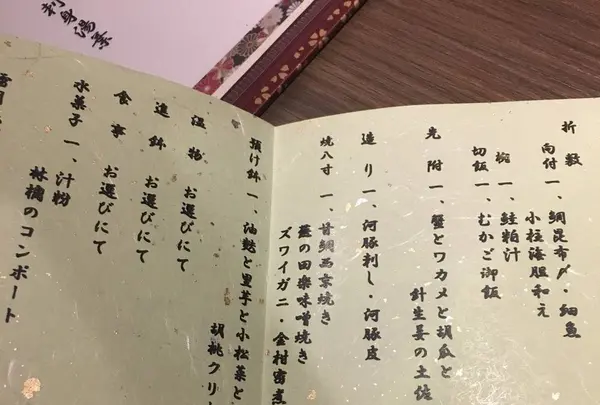 折敷
向付 一、鯛昆布〆・細魚
小柱海胆和え
椀 一、鮭粕汁
切飯 一、むかご御飯
先附 一、蟹とワカメと胡瓜と
針生姜の土佐
造り 一、河豚刺し・河豚皮
焼八寸 一、甘鯛西京焼き
蕪の田楽味噌焼き
ズワイガニ・金柑蜜煮
預け鉢 一、油麩と里芋と小松菜と
胡桃クリ
温物 お選びにて
進鉢 お選びにて
食事 お選びにて
水菓子 一、汁粉
林檎のコンポート